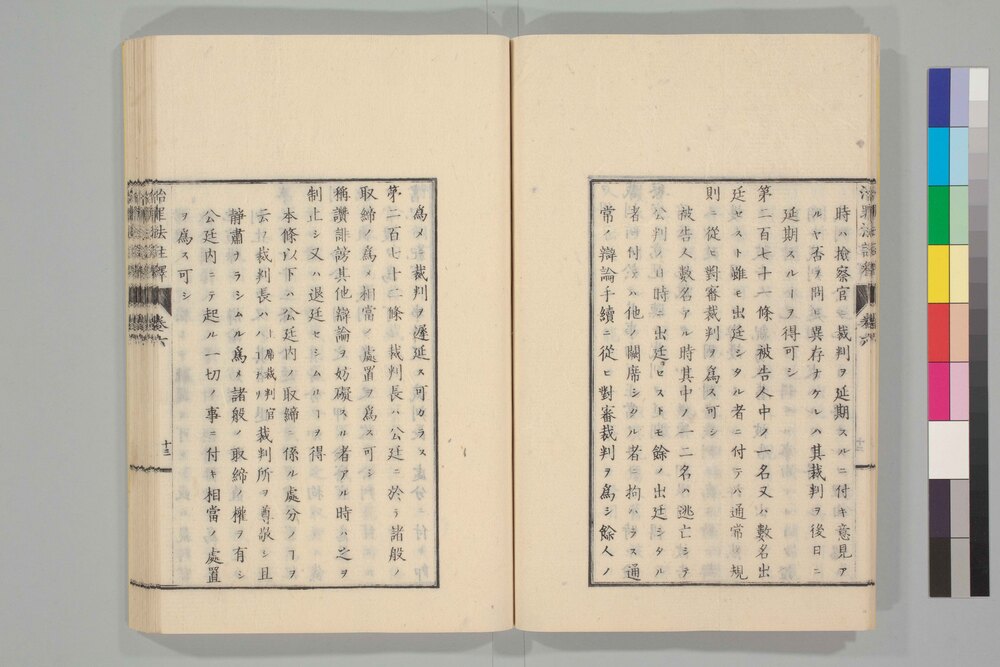 時ハ撿察官ニ裁判ヲ延期スルニ付キ意見ア
ルヤ否ヲ問ヒ異存ナケレハ其裁判ヲ後日ニ
延期スルヿヲ得可シ
第二百七十一條被告人中ノ一名又ハ數名出
廷セスト雖モ出廷シタル者ニ付テハ通常ノ規
則ニ從ヒ對審裁判ヲ爲ス可シ
被告人數名アル時其中ノ一二名ハ逃亡シテ
公判ノ日時ニ出廷セストモ餘ノ出廷シタル
者ニ付テハ他ノ闕席シタル者ニ拘ハラス通
常ノ辯論手續ニ從ヒ對審裁判ヲ爲シ餘人ノ
爲メ裁判ヲ遲延ス可カラス
第二百七十二條裁判長ハ公廷ニ於テ諸般ノ
取締ノ爲メ相當ノ處置ヲ爲ス可シ
稱讚誹謗其他辯論ヲ妨礙スル者アル時ハ之ヲ
制止シ又ハ退廷セシムルヿヲ得
本條以下ハ公廷内ノ取締ニ係ル處分ノヿヲ
云
裁判長ハ
上席裁判官
裁判所ヲ尊敬シ且
靜肅ナラシムル爲メ諸般ノ取締ノ權ヲ有シ
公廷内ニテ起ル一切ノ事ニ付キ相當ノ處置
ヲ爲ス可シ
治罪法註釋
卷六
十三